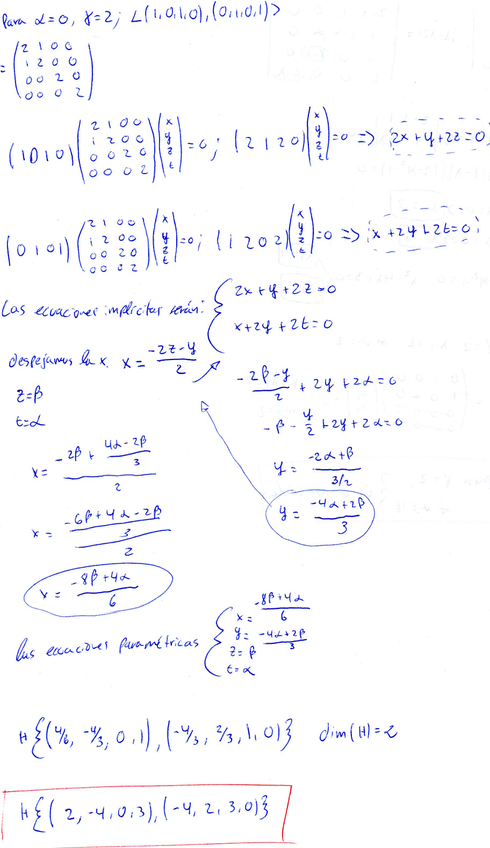 Para α=0, γ=2; L(1,0,1,0),(0,1,0,1)>
= (2 1 0 0
1 2 0 0
0 0 2 0
0 0 0 2)
(1 0 1 0) (2 1 0 0 / 1 2 0 0 / 0 0 2 0 / 0 0 0 2) (x / y / z / t) =0; (2 1 2 0) (x / y / z / t) =0 => 2x+y+2z=0
(0 1 0 1) (2 1 0 0 / 1 2 0 0 / 0 0 2 0 / 0 0 0 2) (x / y / z / t) =0; (1 2 0 2) (x / y / z / t) =0 => x+2y+2t=0
Las ecuaciones implicitas serán: { 2x+y+2z=0
x+2y+2t=0
despejamos la x. x = (-2z-y)/2
z=β
t=α
x = (-2β + (4α-2β)/3)/2
x = ((-6β+4α-2β)/3)/2
x = (-8β+4α)/6
(-2β-y)/2 + 2y + 2α = 0
-β - y/2 + 2y + 2α = 0
y = (-2α+β)/(3/2)
y = (-4α+2β)/3
las ecuaciones paramétricas { x = (-8β+4α)/6
y = (-4α+2β)/3
z=β
t=α
H{(4/6, -4/3, 0, 1), (-4/3, 2/3, 1, 0)} dim(H)=2
H{(2,-4,0,3),(-4,2,3,0)}